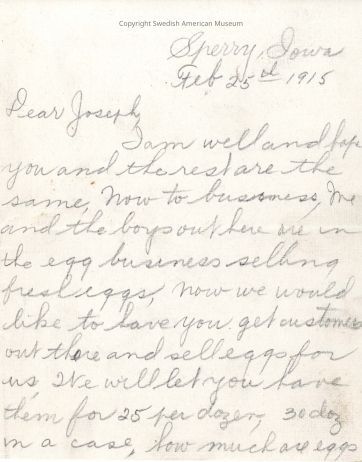 Copyright Swedish American Museum
Sperry, Iowa
Feb 25rd 1915
Dear Joseph,
I am well and hope
you and the rest are the
same, Now to bussness, Me
and the boys out here are in
the egg business selling
fresh eggs, Now we would
like to have you get customers
out there and sell eggs for
us, We will let you have
them for 25 per dozen, 30 doz
in a case, how much are eggs